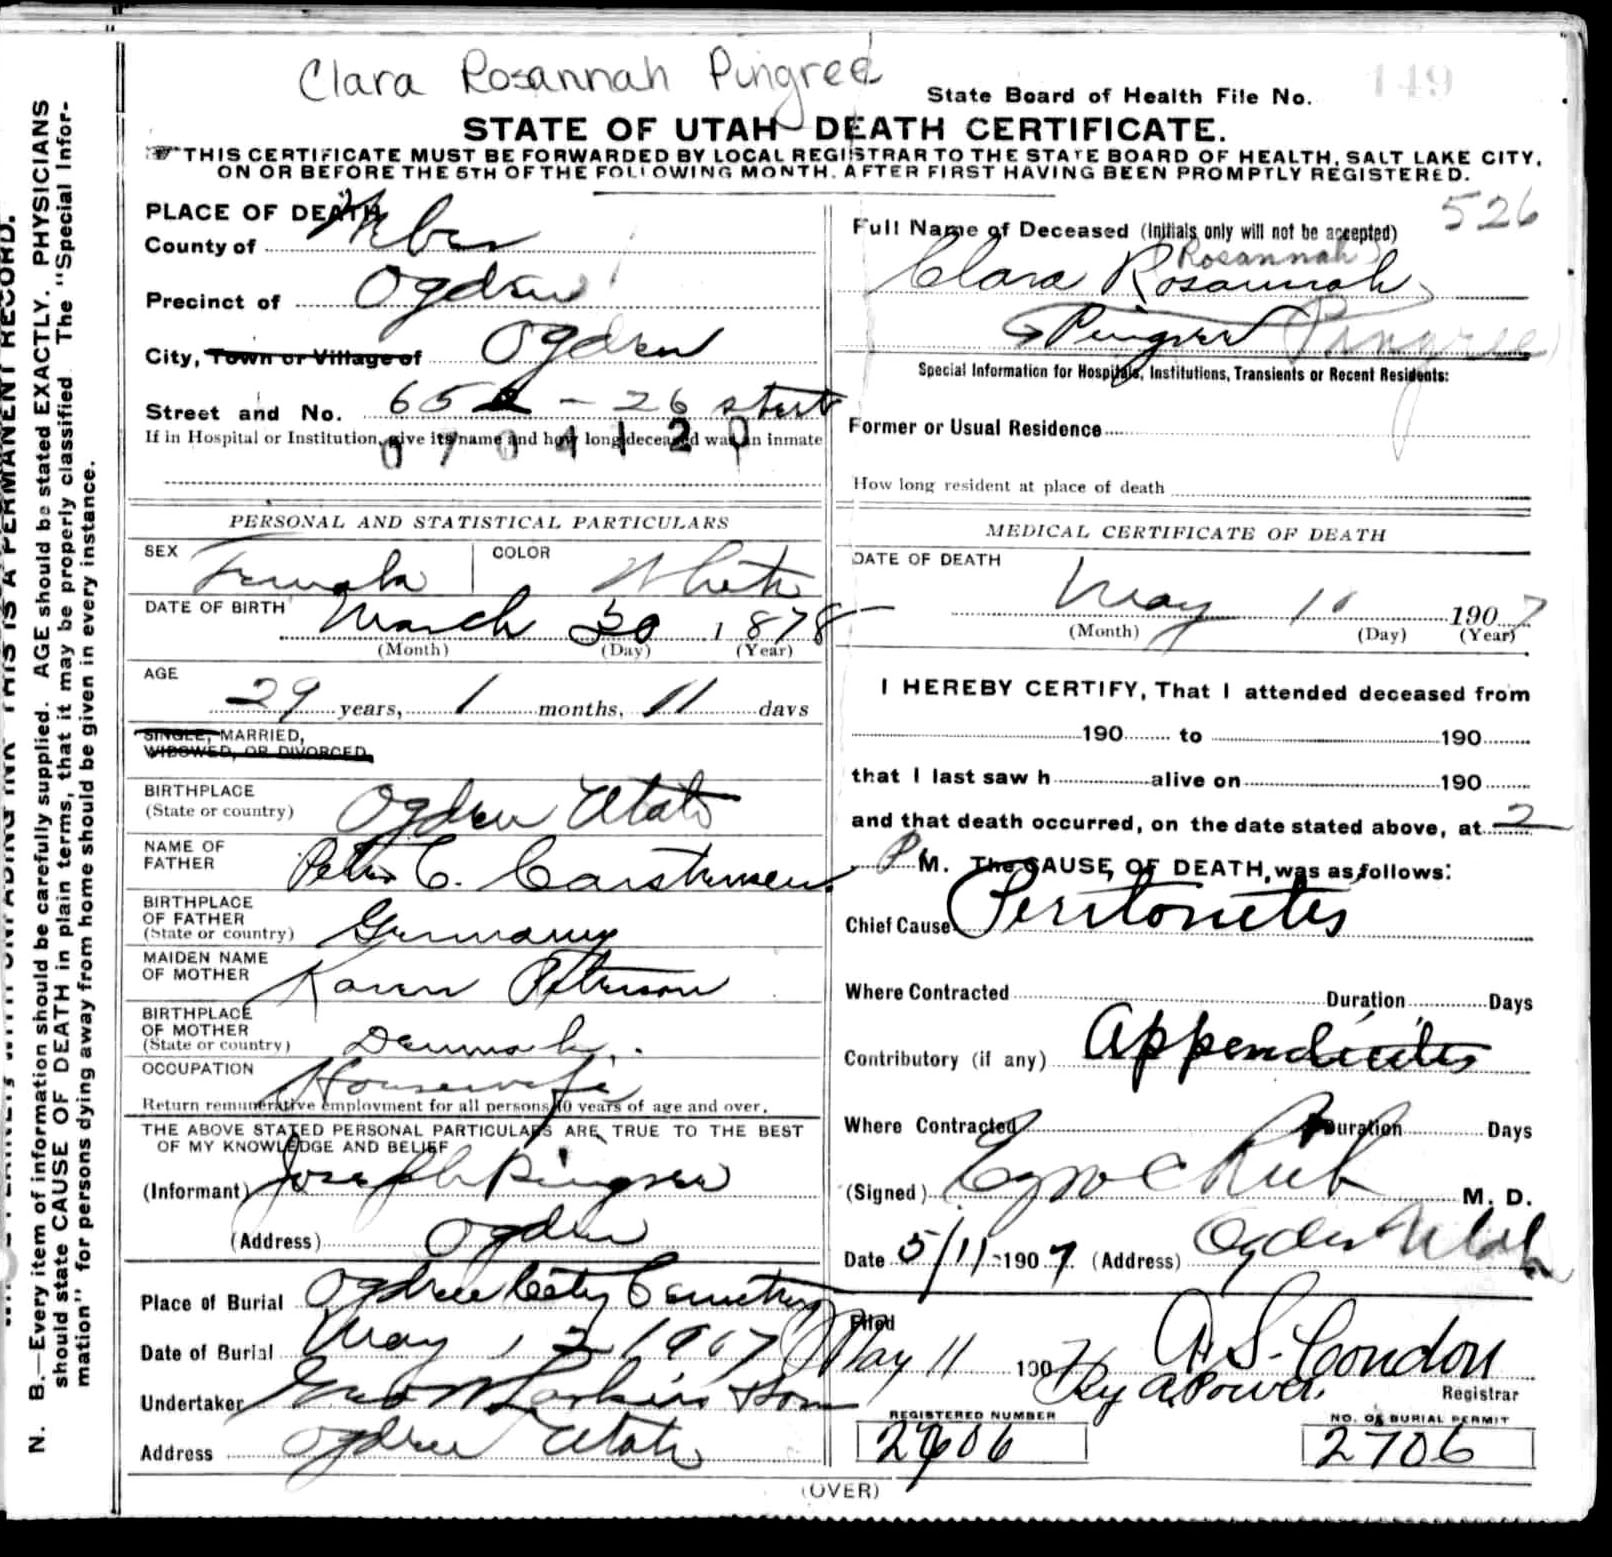 Clara Rosannah Pingree
State Board of Health File No. 149
STATE OF UTAH DEATH CERTIFICATE.
THIS CERTIFICATE MUST BE FORWARDED BY LOCAL REGISTRAR TO THE STATE BOARD OF HEALTH, SALT LAKE CITY,
ON OR BEFORE THE 5TH OF THE FOLLOWING MONTH. AFTER FIRST HAVING BEEN PROMPTLY REGISTERED.
526
PLACE OF DEATH
County of Weber
Precinct of Ogden
City, Town or Village of Ogden
Street and No. 65 - 26 street
If in Hospital or Institution, give its name and how long deceased was an inmate
0704120
PERSONAL AND STATISTICAL PARTICULARS
SEX Female COLOR White
DATE OF BIRTH March 30 1878
(Month) (Day) (Year)
AGE
29 years, 1 months, 11 days
SINGLE, MARRIED,
WIDOWED, OR DIVORCED
BIRTHPLACE
(State or country) Ogden Utah
NAME OF
FATHER Peter C. Carstensen
BIRTHPLACE
OF FATHER
(State or country) Germany
MAIDEN NAME
OF MOTHER Karen Peterson
BIRTHPLACE
OF MOTHER
(State or country) Denmark
OCCUPATION Housewife
Return remunerative employment for all persons 10 years of age and over.
THE ABOVE STATED PERSONAL PARTICULARS ARE TRUE TO THE BEST
OF MY KNOWLEDGE AND BELIEF
(Informant) Joseph Pingree
(Address) Ogden
Place of Burial Ogden City Cemetery
Date of Burial May 12 1907
Undertaker Geo W Larkin & Son
Address Ogden Utah
Full Name of Deceased (Initials only will not be accepted)
Rosannah
Clara Rosannah
Pingree Pingree
Special Information for Hospitals, Institutions, Transients or Recent Residents:
Former or Usual Residence
How long resident at place of death
MEDICAL CERTIFICATE OF DEATH
DATE OF DEATH
May 10 1907
(Month) (Day) (Year)
I HEREBY CERTIFY, That I attended deceased from
190 to 190
that I last saw h alive on 190
and that death occurred, on the date stated above, at 2
P M. The CAUSE OF DEATH, was as follows:
Chief Cause Peritonitis
Where Contracted Duration Days
Contributory (if any) Appendicitis
Where Contracted Duration Days
(Signed) Ezra C Rich M. D.
Date 5/11 1907. (Address) Ogden Utah
Filed
May 11 1907 A. S. Condon
Registrar
REGISTERED NUMBER
2706
NO. OF BURIAL PERMIT
2706
(OVER)
N. B.—Every item of information should be carefully supplied. AGE should be stated EXACTLY. PHYSICIANS
should state CAUSE OF DEATH in plain terms, that it may be properly classified. The "Special Infor-
mation" for persons dying away from home should be given in every instance.
THIS IS A PERMANENT RECORD.